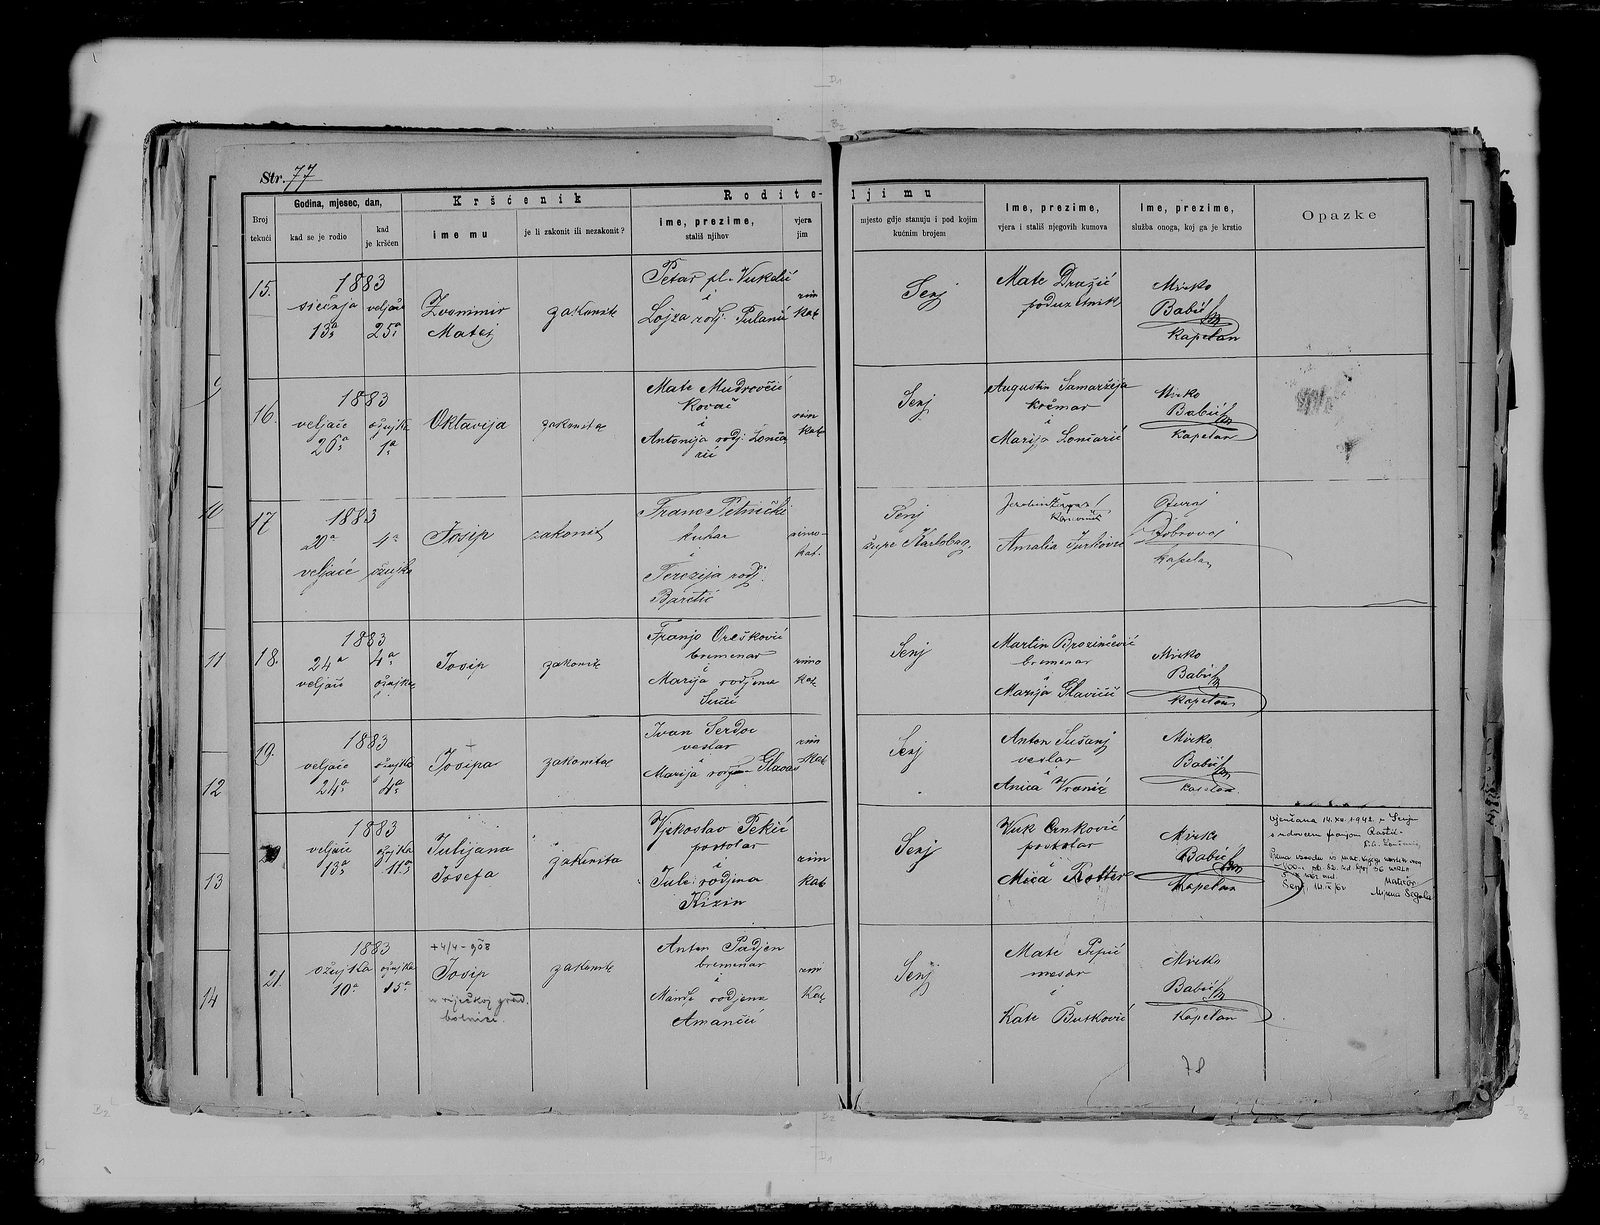 Str. 77
Godina, mjesec, dan,
Kršćenik
Roditeljimu
Broj tekući
kad se je rodio
kad je kršćen
ime mu
je li zakonit ili nezakonit?
ime, prezime,
stališ njihov
vjera jim
mjesto gdje stanuju i pod kojim kućnim brojem
Ime, prezime,
vjera i stališ njegovih kumova
Ime, prezime,
služba onoga, koj ga je krstio
Opazke
15.
1883
siečnja
13a
veljače
25a
Zvonimir
Matej
zakonit
Petar pl. Vukelić
i
Lojza rodj.
rim
kat
Senj
Mate Dražić
poduzetnik
Mirko
Babić
Kapelan
9
16.
1883
veljače
26a
ožujka
1a
Oktavija
zakonita
Mate Mudrovčić
Kovač
i
Antonija rodj. Lonča
rić
rim
kat
Senj
Augustin Samaržija
krčmar
i
Marija Lončarić
Mirko
Babić
Kapelan
10
17
1883
20a
veljače
4a
ožujka
Josip
zakonit
Franc Petnički
kuhar
i
Terezija rodj.
Baretić
rimo-
kat.
Senj
župe Karlobag.
Amalia Jurković
Juraj
Dobrovoj
kapelan
11
18.
1883
24a
veljače
4a
ožujka
Josip
zakonit
Franjo Orešković
bremenar
i
Marija rodjena
rimo
kat
Senj
Martin Brozinčević
bremenar
i
Marija Glavičić
Mirko
Babić
Kapelan
12
19.
1883
veljače
24a
ožujka
4a
Josipa
zakonita
Ivan Serdoc
veslar
i
Marija rodjena Glavaš
rim
kat
Senj
Anton Sušanj
veslar
i
Anica Vranić
Mirko
Babić
Kapelan
13
20
1883
veljače
13a
ožujka
11a
Julijana
Josefa
zakonita
Vjekoslav Pekić
postolar
i
Jule rodjena
Kizin
rim
kat
Senj
Vuk Crnković
postolar
i
Mica Rotter
Mirko
Babić
Kapelan
Vjenčana 14.XII.1942. u Senju
s udovcem Franjom
Matičar
14
21.
1883
ožujka
10a
ožujka
15a
+4/4-908
Josip
u riječkoj grad.
bolnici.
zakonit
Anton Padjen
bremenar
i
rodjena
Amančić
rim
Kat
Senj
Mate Pipić
mesar
i
Kate Butković
Mirko
Babić
Kapelan
78